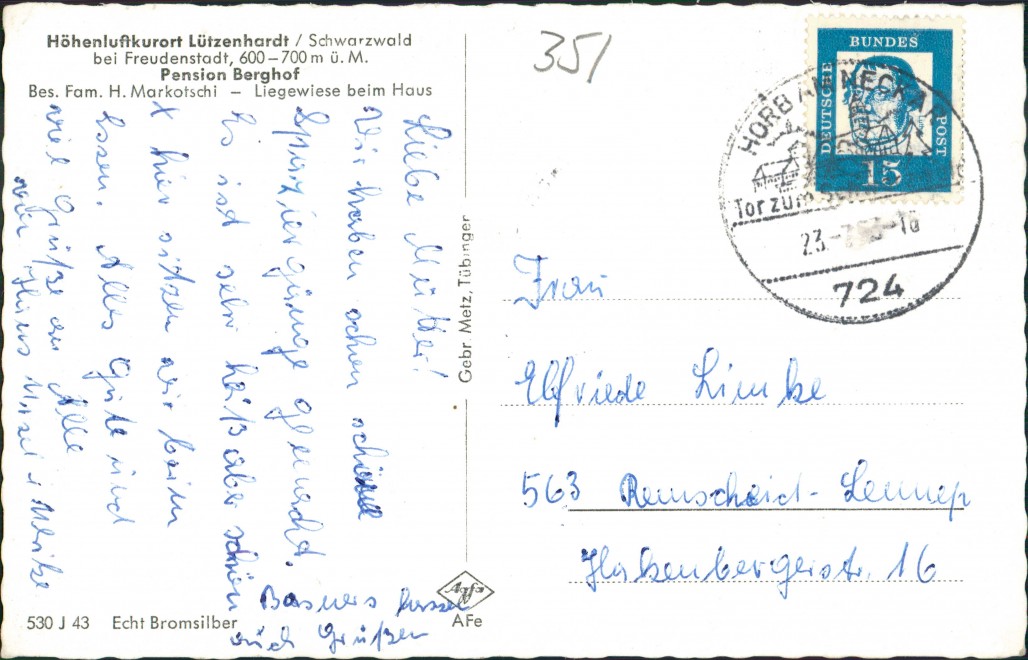 Höhenluftkurort Lützenhardt / Schwarzwald
bei Freudenstadt, 600–700 m ü. M.
Pension Berghof
Bes. Fam. H. Markotschi – Liegewiese beim Haus
Liebe Mutter!
Wir haben schon schöne
Spaziergänge gemacht.
Es ist sehr heiß aber schön
hier sitzen wir beim
Essen. Alles Gute und
viel Grüße an Alle
von
Basners lassen
auch Grüßen
530 J 43 Echt Bromsilber
Gebr. Metz, Tübingen
Agfa
AFe
351
DEUTSCHE BUNDES POST
15
HORB AM NECKAR
Tor zum
23.
724
Frau
Elfriede Limke
563 Remscheid-Lennep
Hakenbergerstr. 16